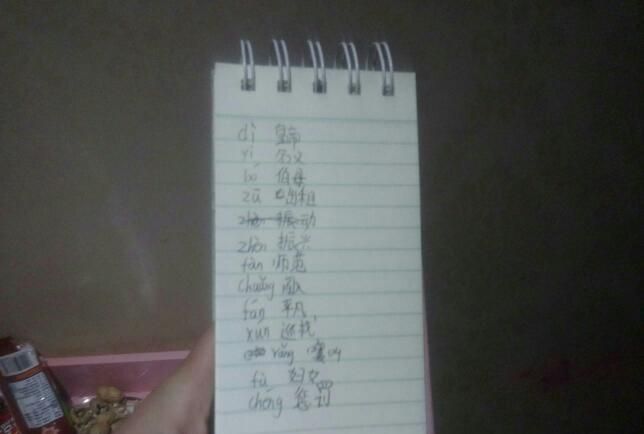 dì 皇帝
yì 名义
bó 伯母
zū 出租
zhèn 振动
zhèn 振兴
fàn 师范
chuǎng 闯
fán 平凡
xún 巡
rǎng 嚷
fù 妇女
chéng 惩罚